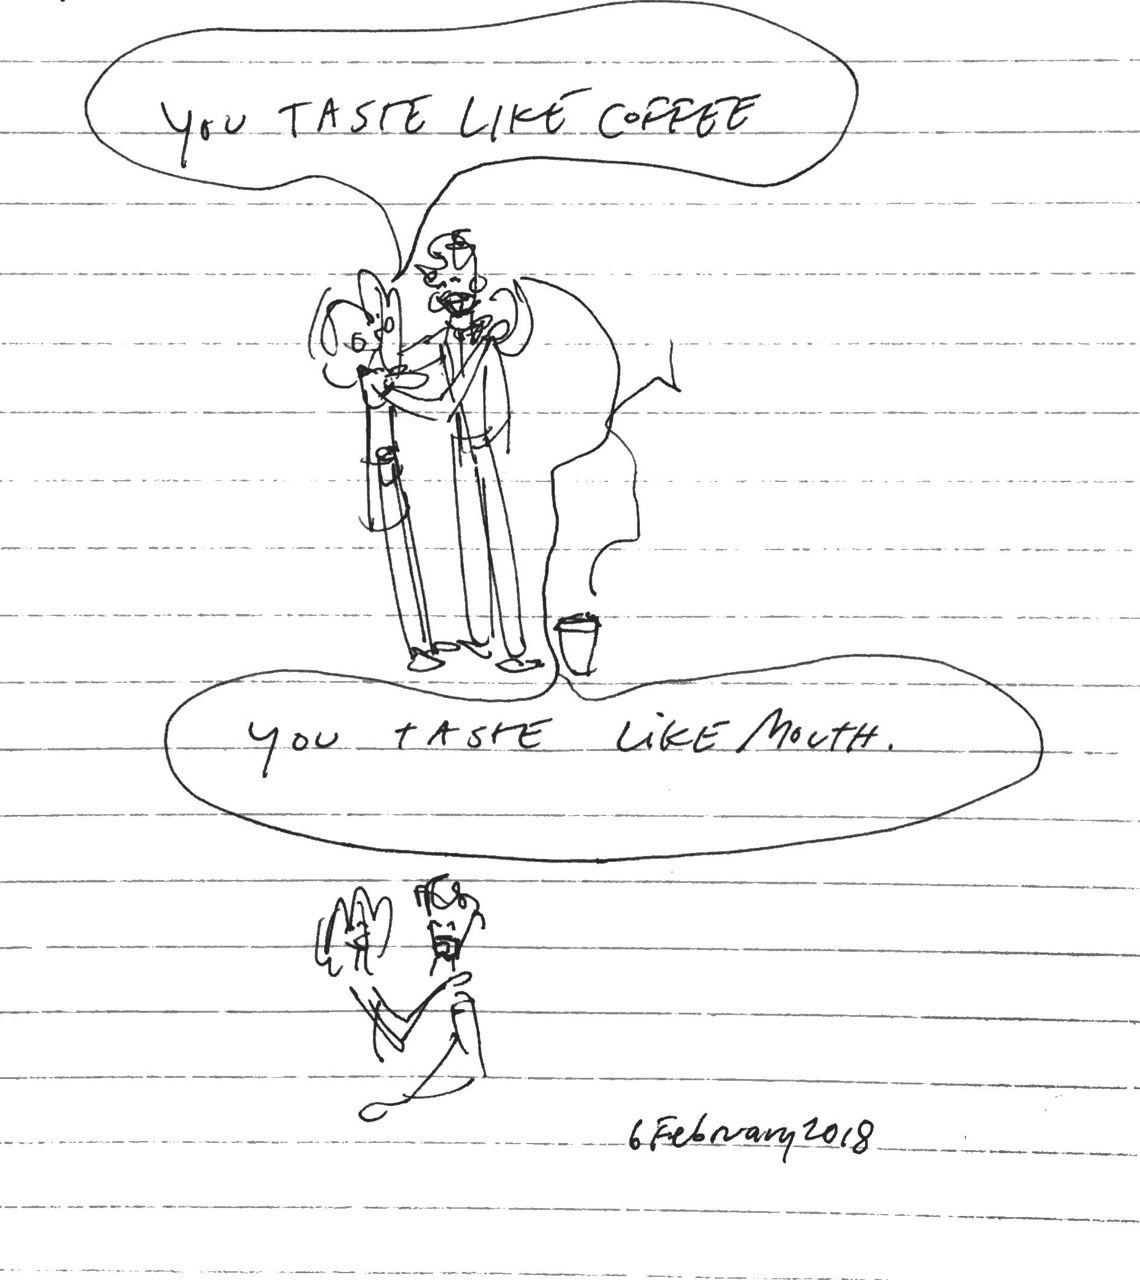 YOU TASTE LIKE COFFEE
YOU TASTE LIKE MOUTH.
6 February 2018